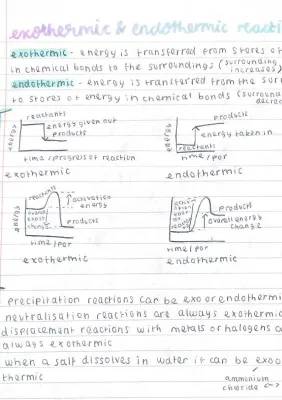 exothermic & endothermic reacti
exothermic - energy is transferred from stores of
in chemical bonds to the surroundings (surrounding
increases)
endothermic - energy is transferred from the surr
to stores of energy in chemical bonds (surround
decrea
reactants
energy given out
products
energy
time/progress of reaction
exothermic
products
energy taken in
reactants
energy
time/por
endothermic
reactants
activation
energy
overall
energy
change
products
energy
time/por
exothermic
products
overall energy
change
energy
time/por
endothermic
precipitation reactions can be exo or endothermi
neutralisation reactions are always exothermic
displacement reactions with metals or halogens a
always exothermic
when a salt dissolves in water it can be exo o
thermic
ammonium
chloride